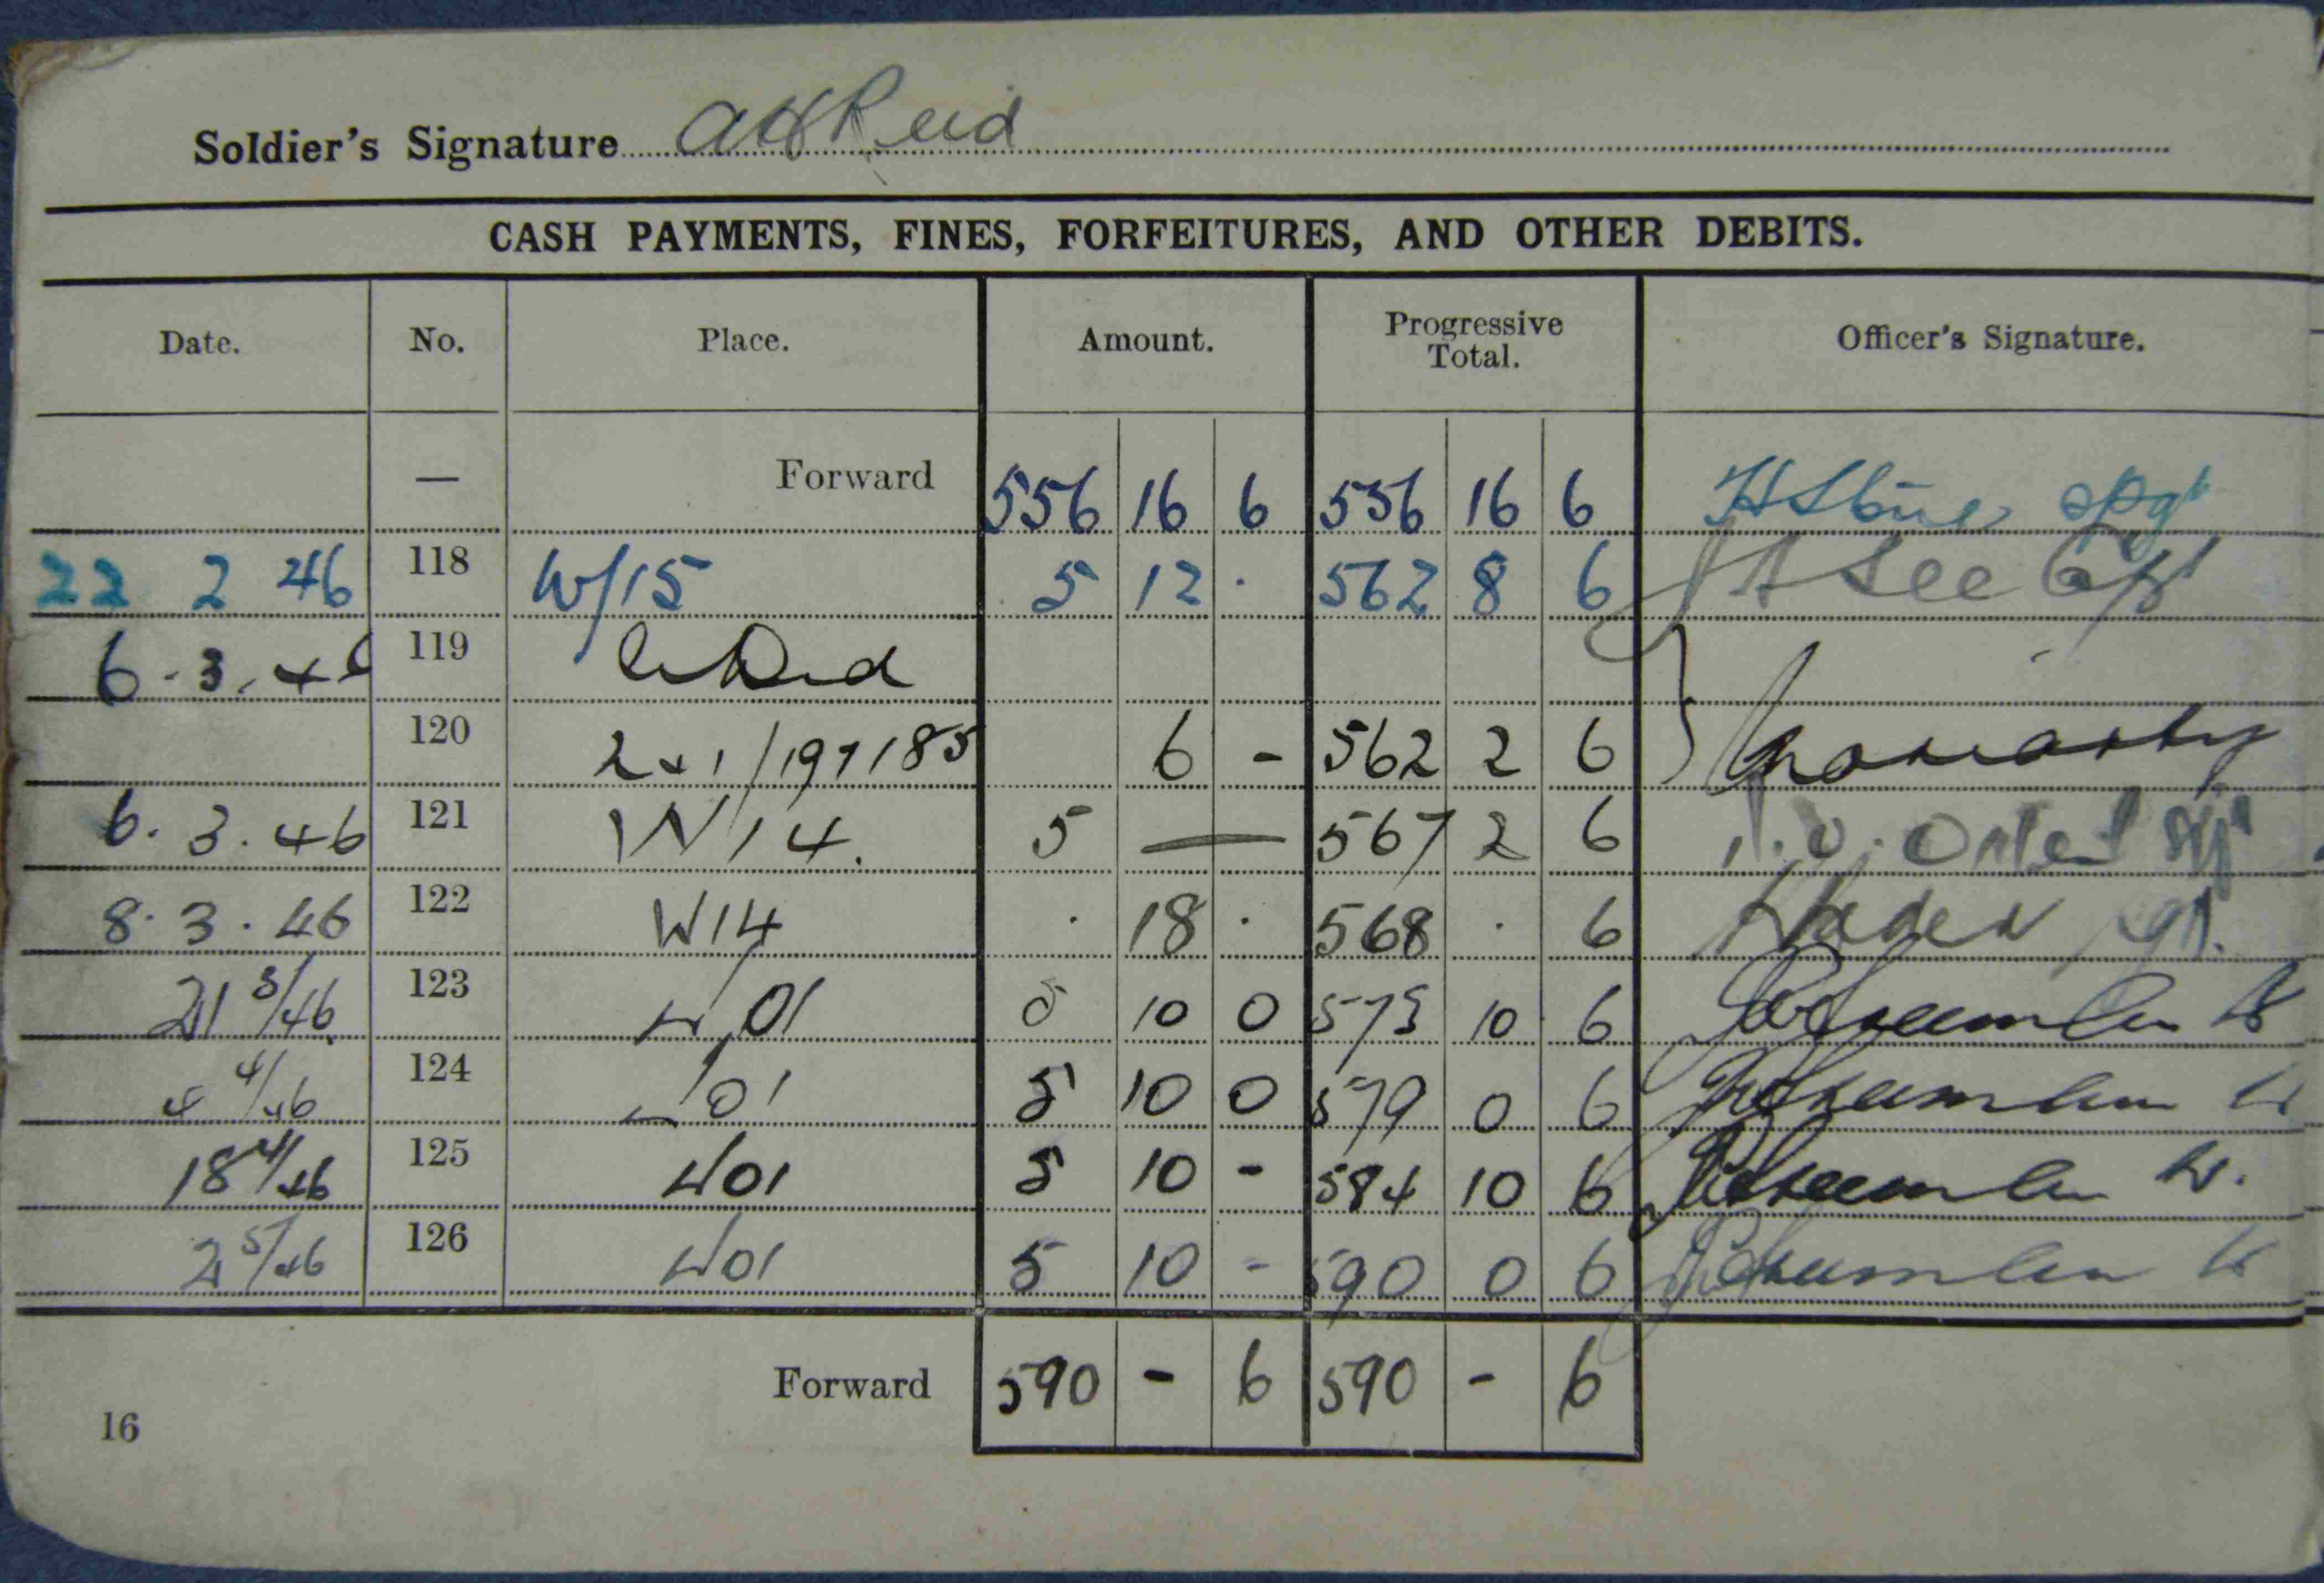 Soldier's Signature AHReid
CASH PAYMENTS, FINES, FORFEITURES, AND OTHER DEBITS.
Date. No. Place. Amount. Progressive Total. Officer's Signature.
— Forward 556 16 6 556 16 6
22 2 46 118 W/15 5 12 · 562 8 6 Lee
6.3.46 119
120 241/197185 6 - 562 2 6
6.3.46 121 W14. 5 — 567 2 6
8.3.46 122 W14 · 18 · 568 · 6
21 3/46 123 W01 5 10 0 573 10 6
4 4/46 124 W01 5 10 0 579 0 6
18 4/46 125 W01 5 10 - 584 10 6
2 5/46 126 W01 5 10 - 590 0 6
Forward 590 - 6 590 - 6
16